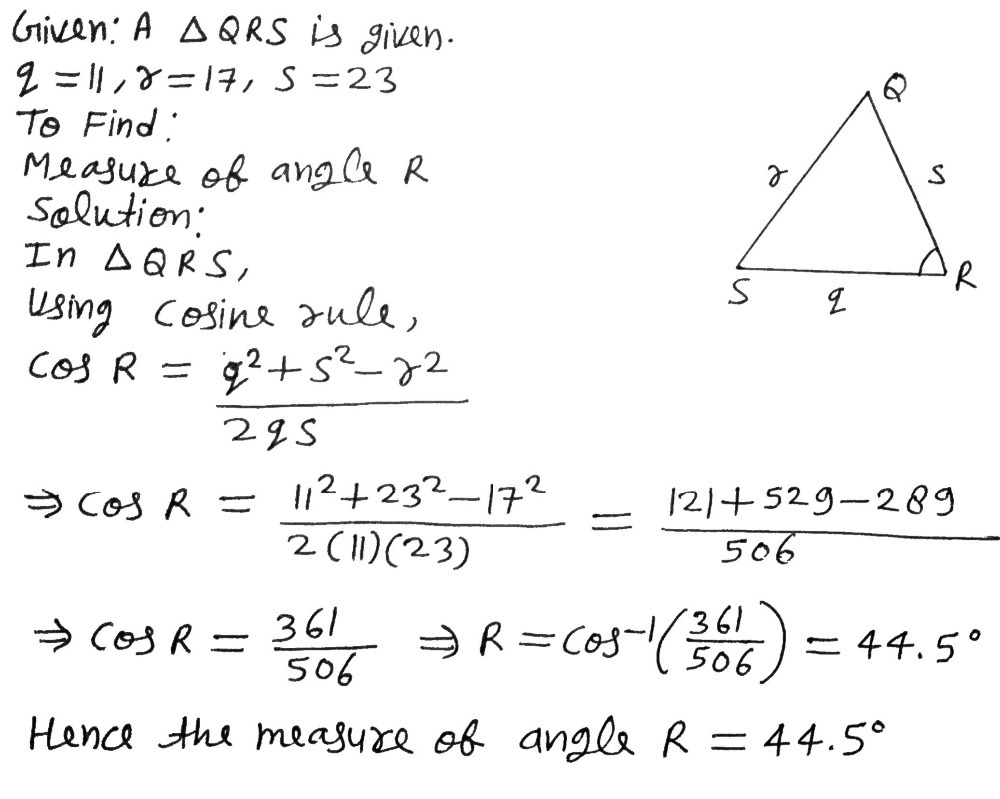 Given: A △QRS is given.
q = 11, r = 17, s = 23
To Find:
Measure of angle R
Solution:
In △QRS,
Using cosine rule,
cos R = (q² + s² − r²) / 2qs
⇒ cos R = (11² + 23² − 17²) / 2(11)(23) = (121 + 529 − 289) / 506
⇒ cos R = 361/506 ⇒ R = cos⁻¹(361/506) = 44.5°
Hence the measure of angle R = 44.5°
Q
r
s
S
q
R